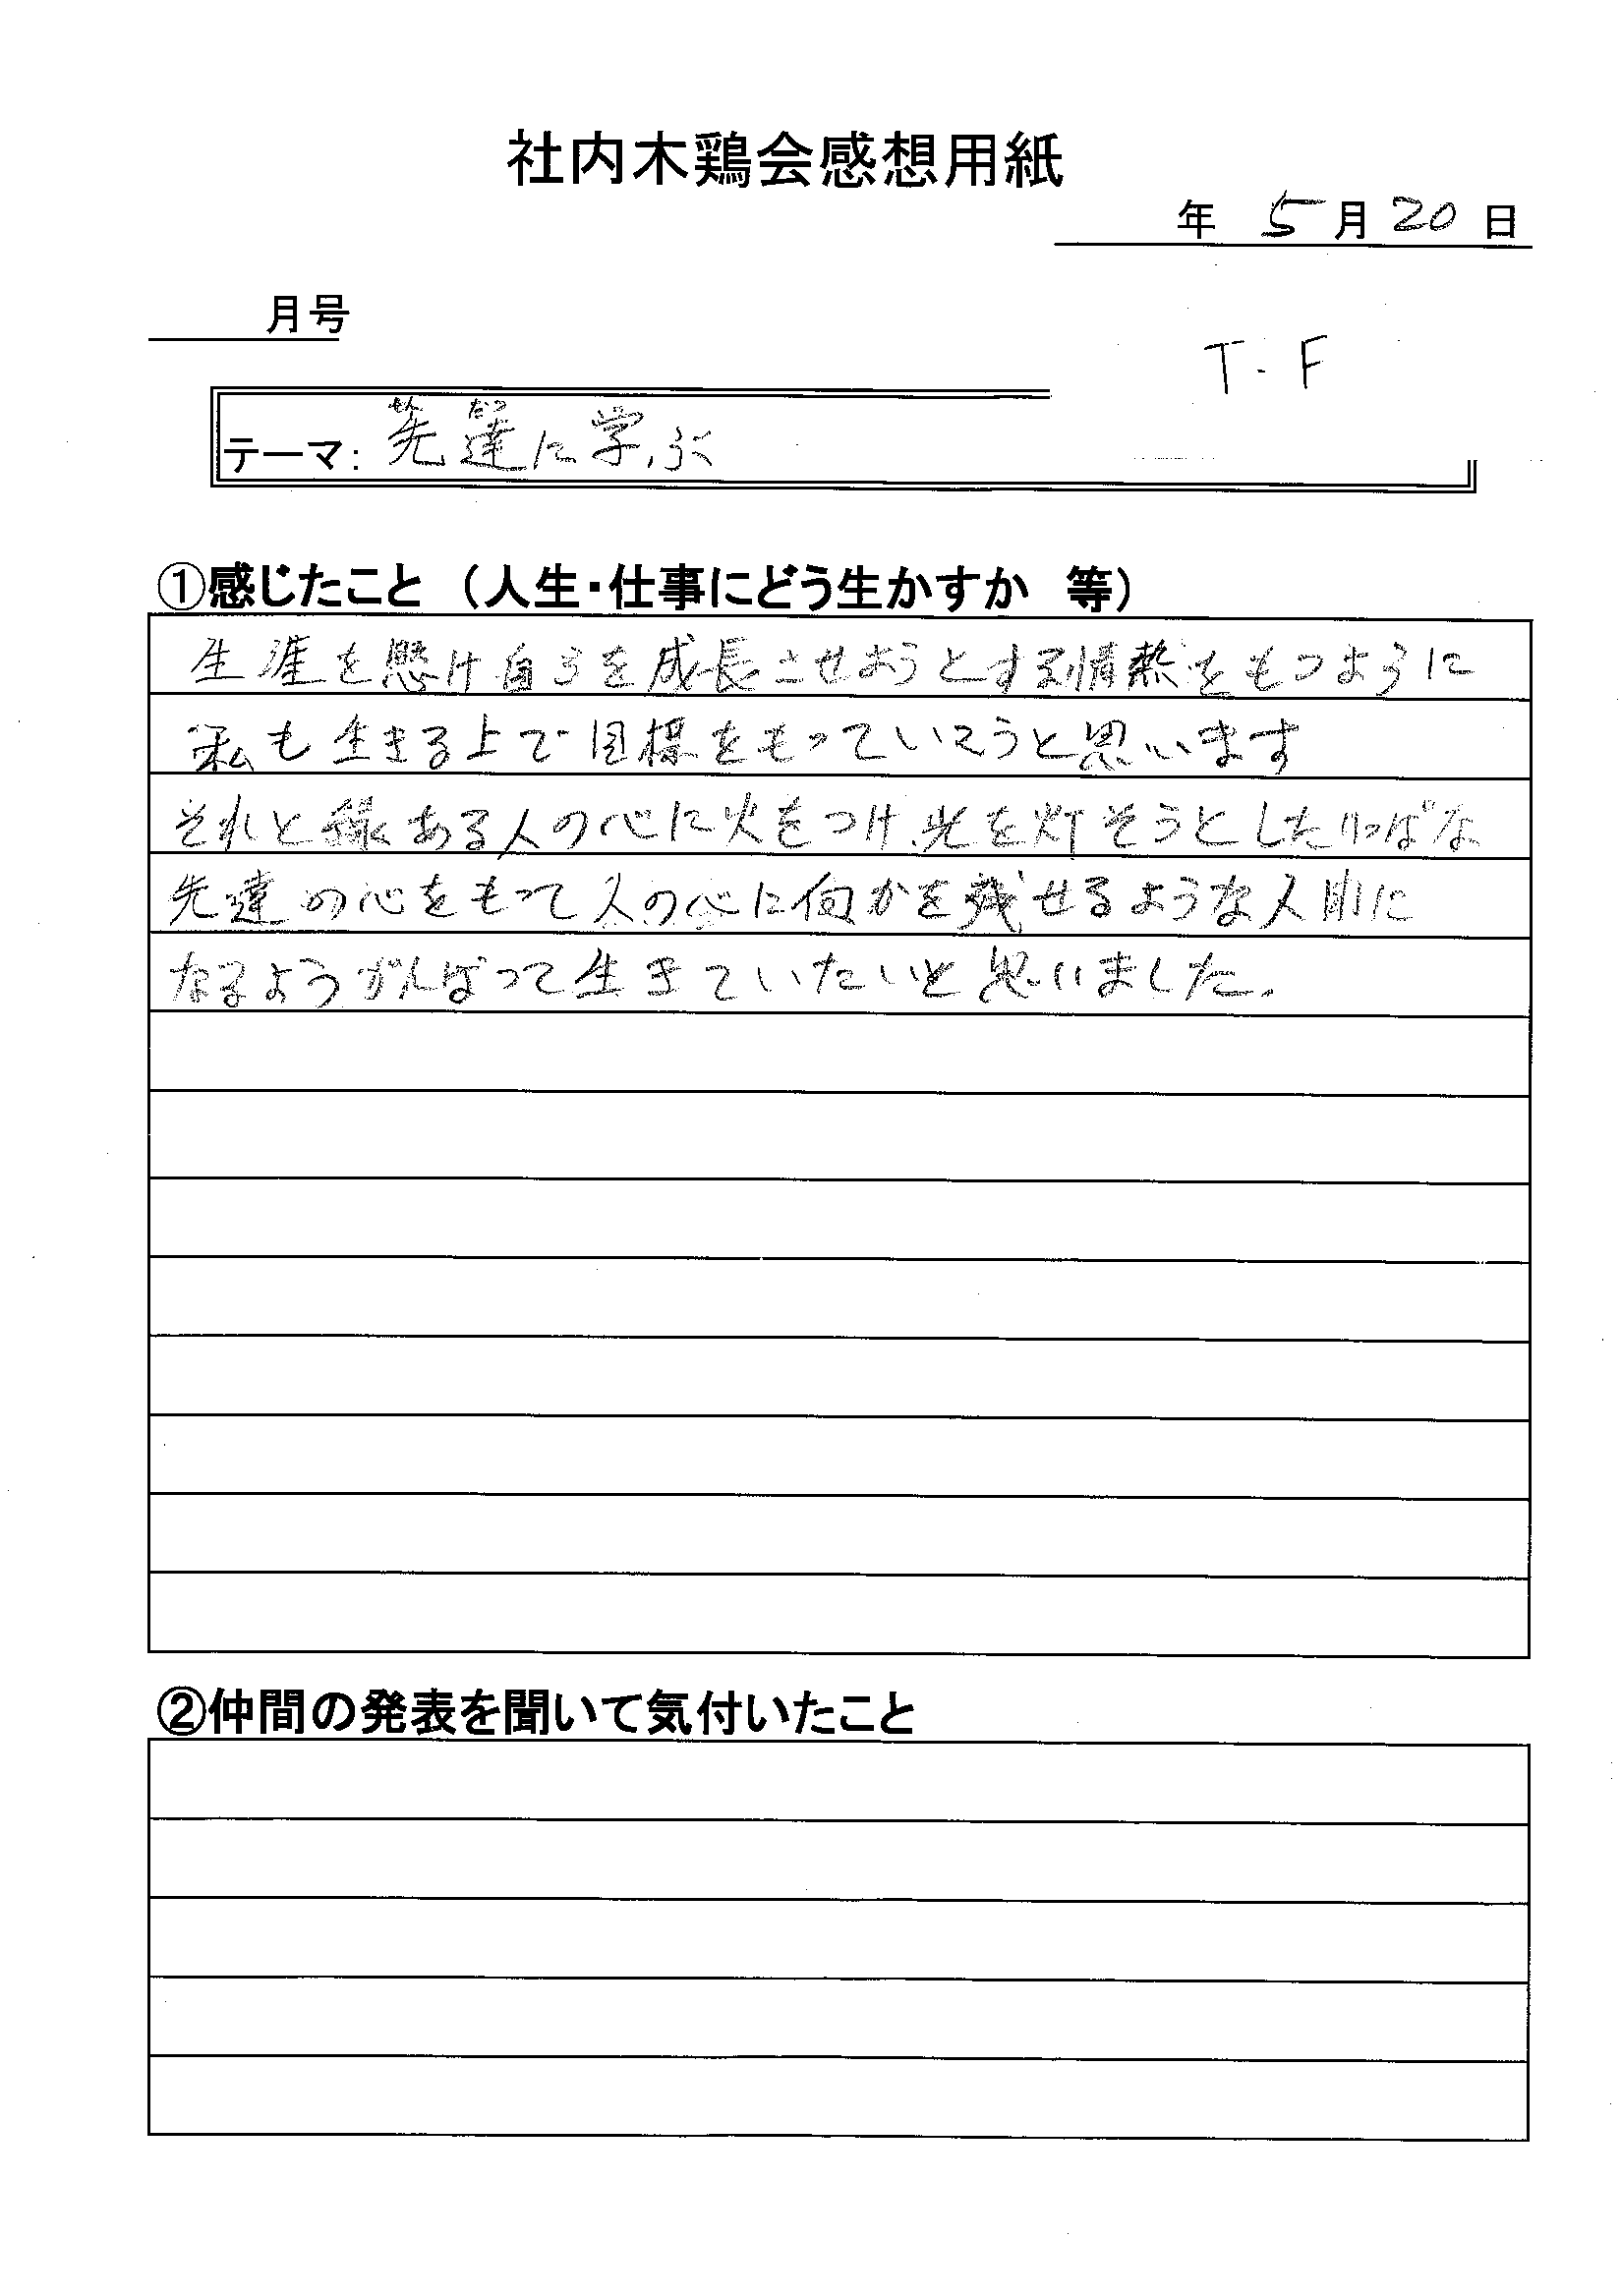 社内木鶏会感想用紙
年 5月20日
月号
T.F
せん だつ
テーマ: 先達に学ぶ
①感じたこと (人生・仕事にどう生かすか 等)
生涯を懸け自らを成長させようとする情熱をもつように
私も生きる上で目標をもっていこうと思います
それと縁ある人の心に火をつけ、光を灯そうとしたりっぱな
先達の心をもって人の心に何かを残せるような人間に
なるようがんばって生きていたいと思いました。
②仲間の発表を聞いて気付いたこと